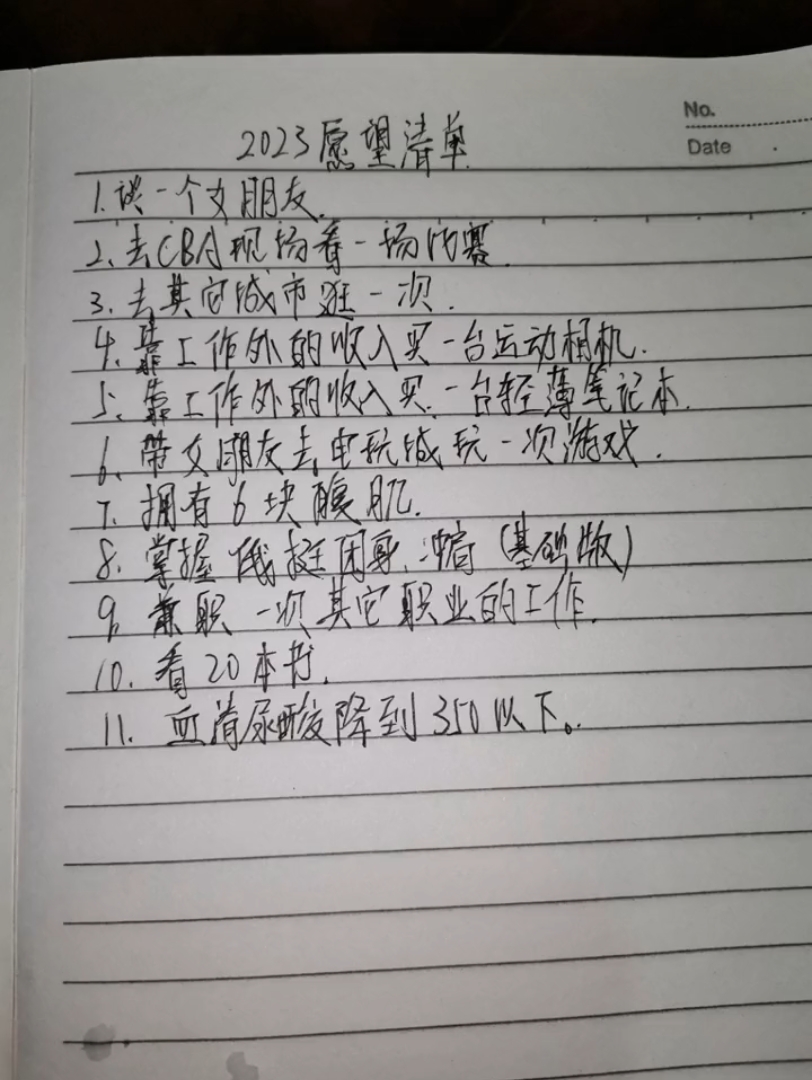 No.
Date
2023愿望清单
1.谈一个女朋友.
2、去CBA现场看一场比赛.
3.去其它城市逛一次.
4.靠工作外的收入买一台运动相机.
5.靠工作外的收入买一台轻薄笔记本.
6、带女朋友去电玩城玩一次游戏.
7.拥有6块腹肌.
8.掌握俄挺 (基础版)
9.兼职一次其它职业的工作.
10.看20本书.
11.血清尿酸降到350以下。